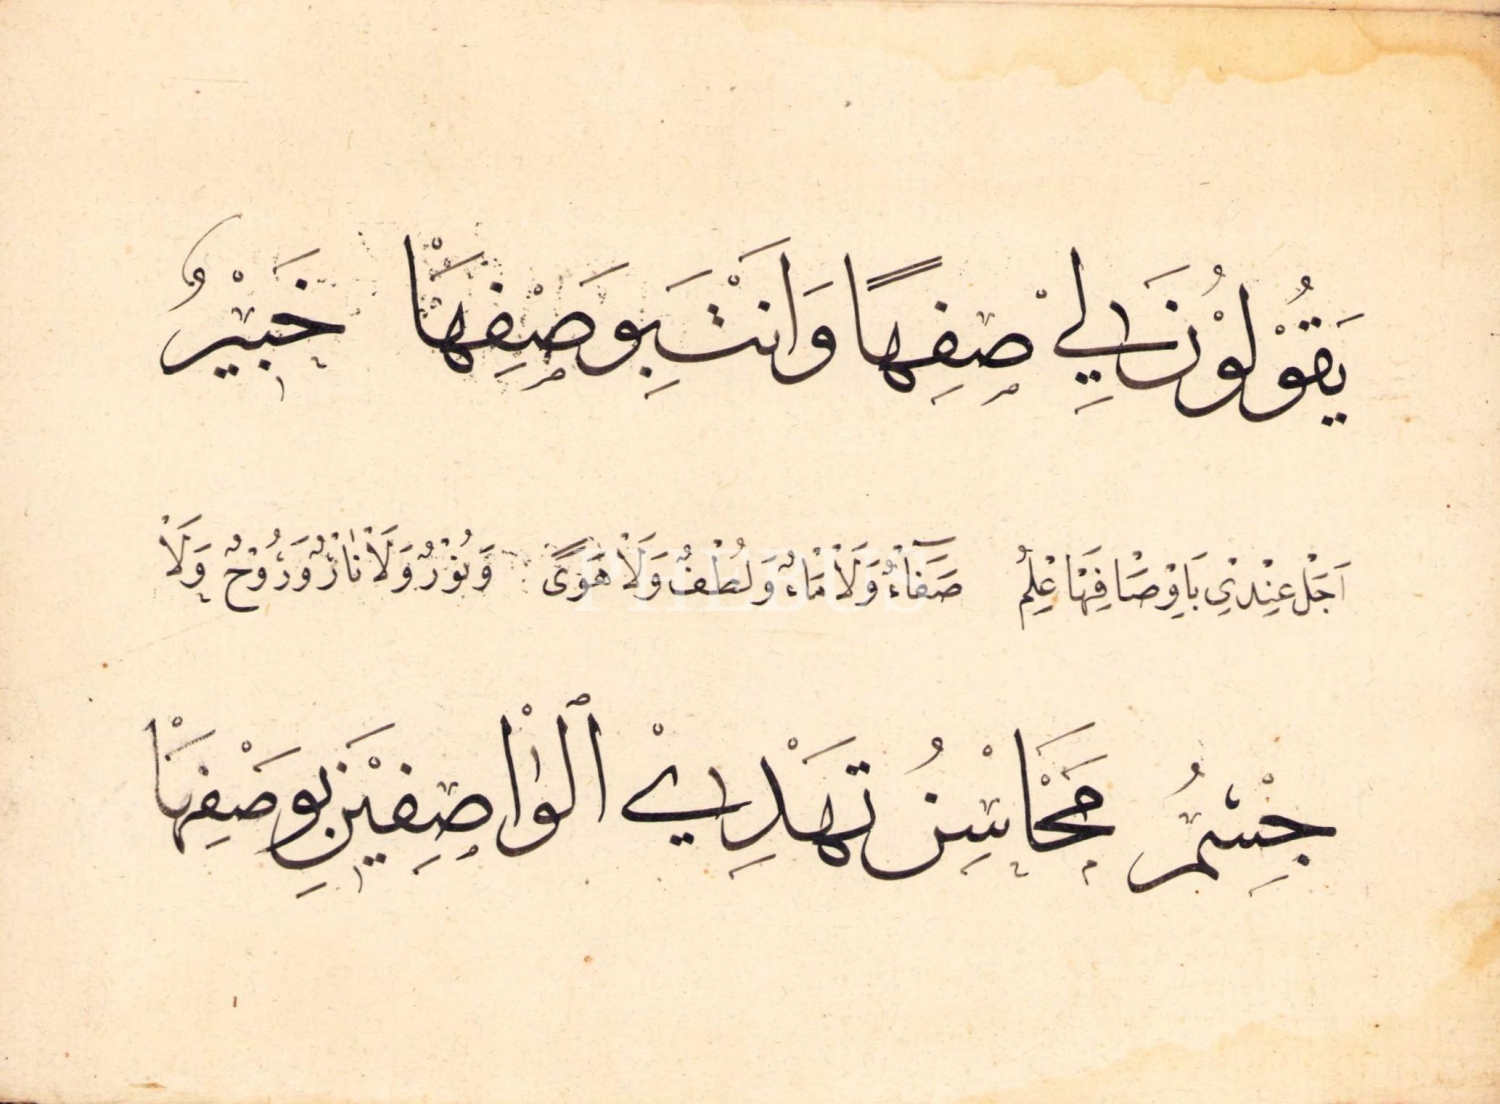 يَقُوْلُوْنَ لِيْ صِفْهَا وَاَنْتَ بِوَصْفِهَا خَبِيْرٌ
اَجَلْ عِنْدِيْ بِاَوْصَافِهَا عِلْمُ صَفَآءٌ وَلَا مَاءٌ وَلُطْفٌ وَلَا هَوًى وَنُوْرٌ وَلَا نَارٌ وَرُوْحٌ وَلَا
جِسْمُ مَحَاسِنُ تَهْدِيْ الْوَاصِفِيْنَ بِوَصْفِهَا
PHEBUS